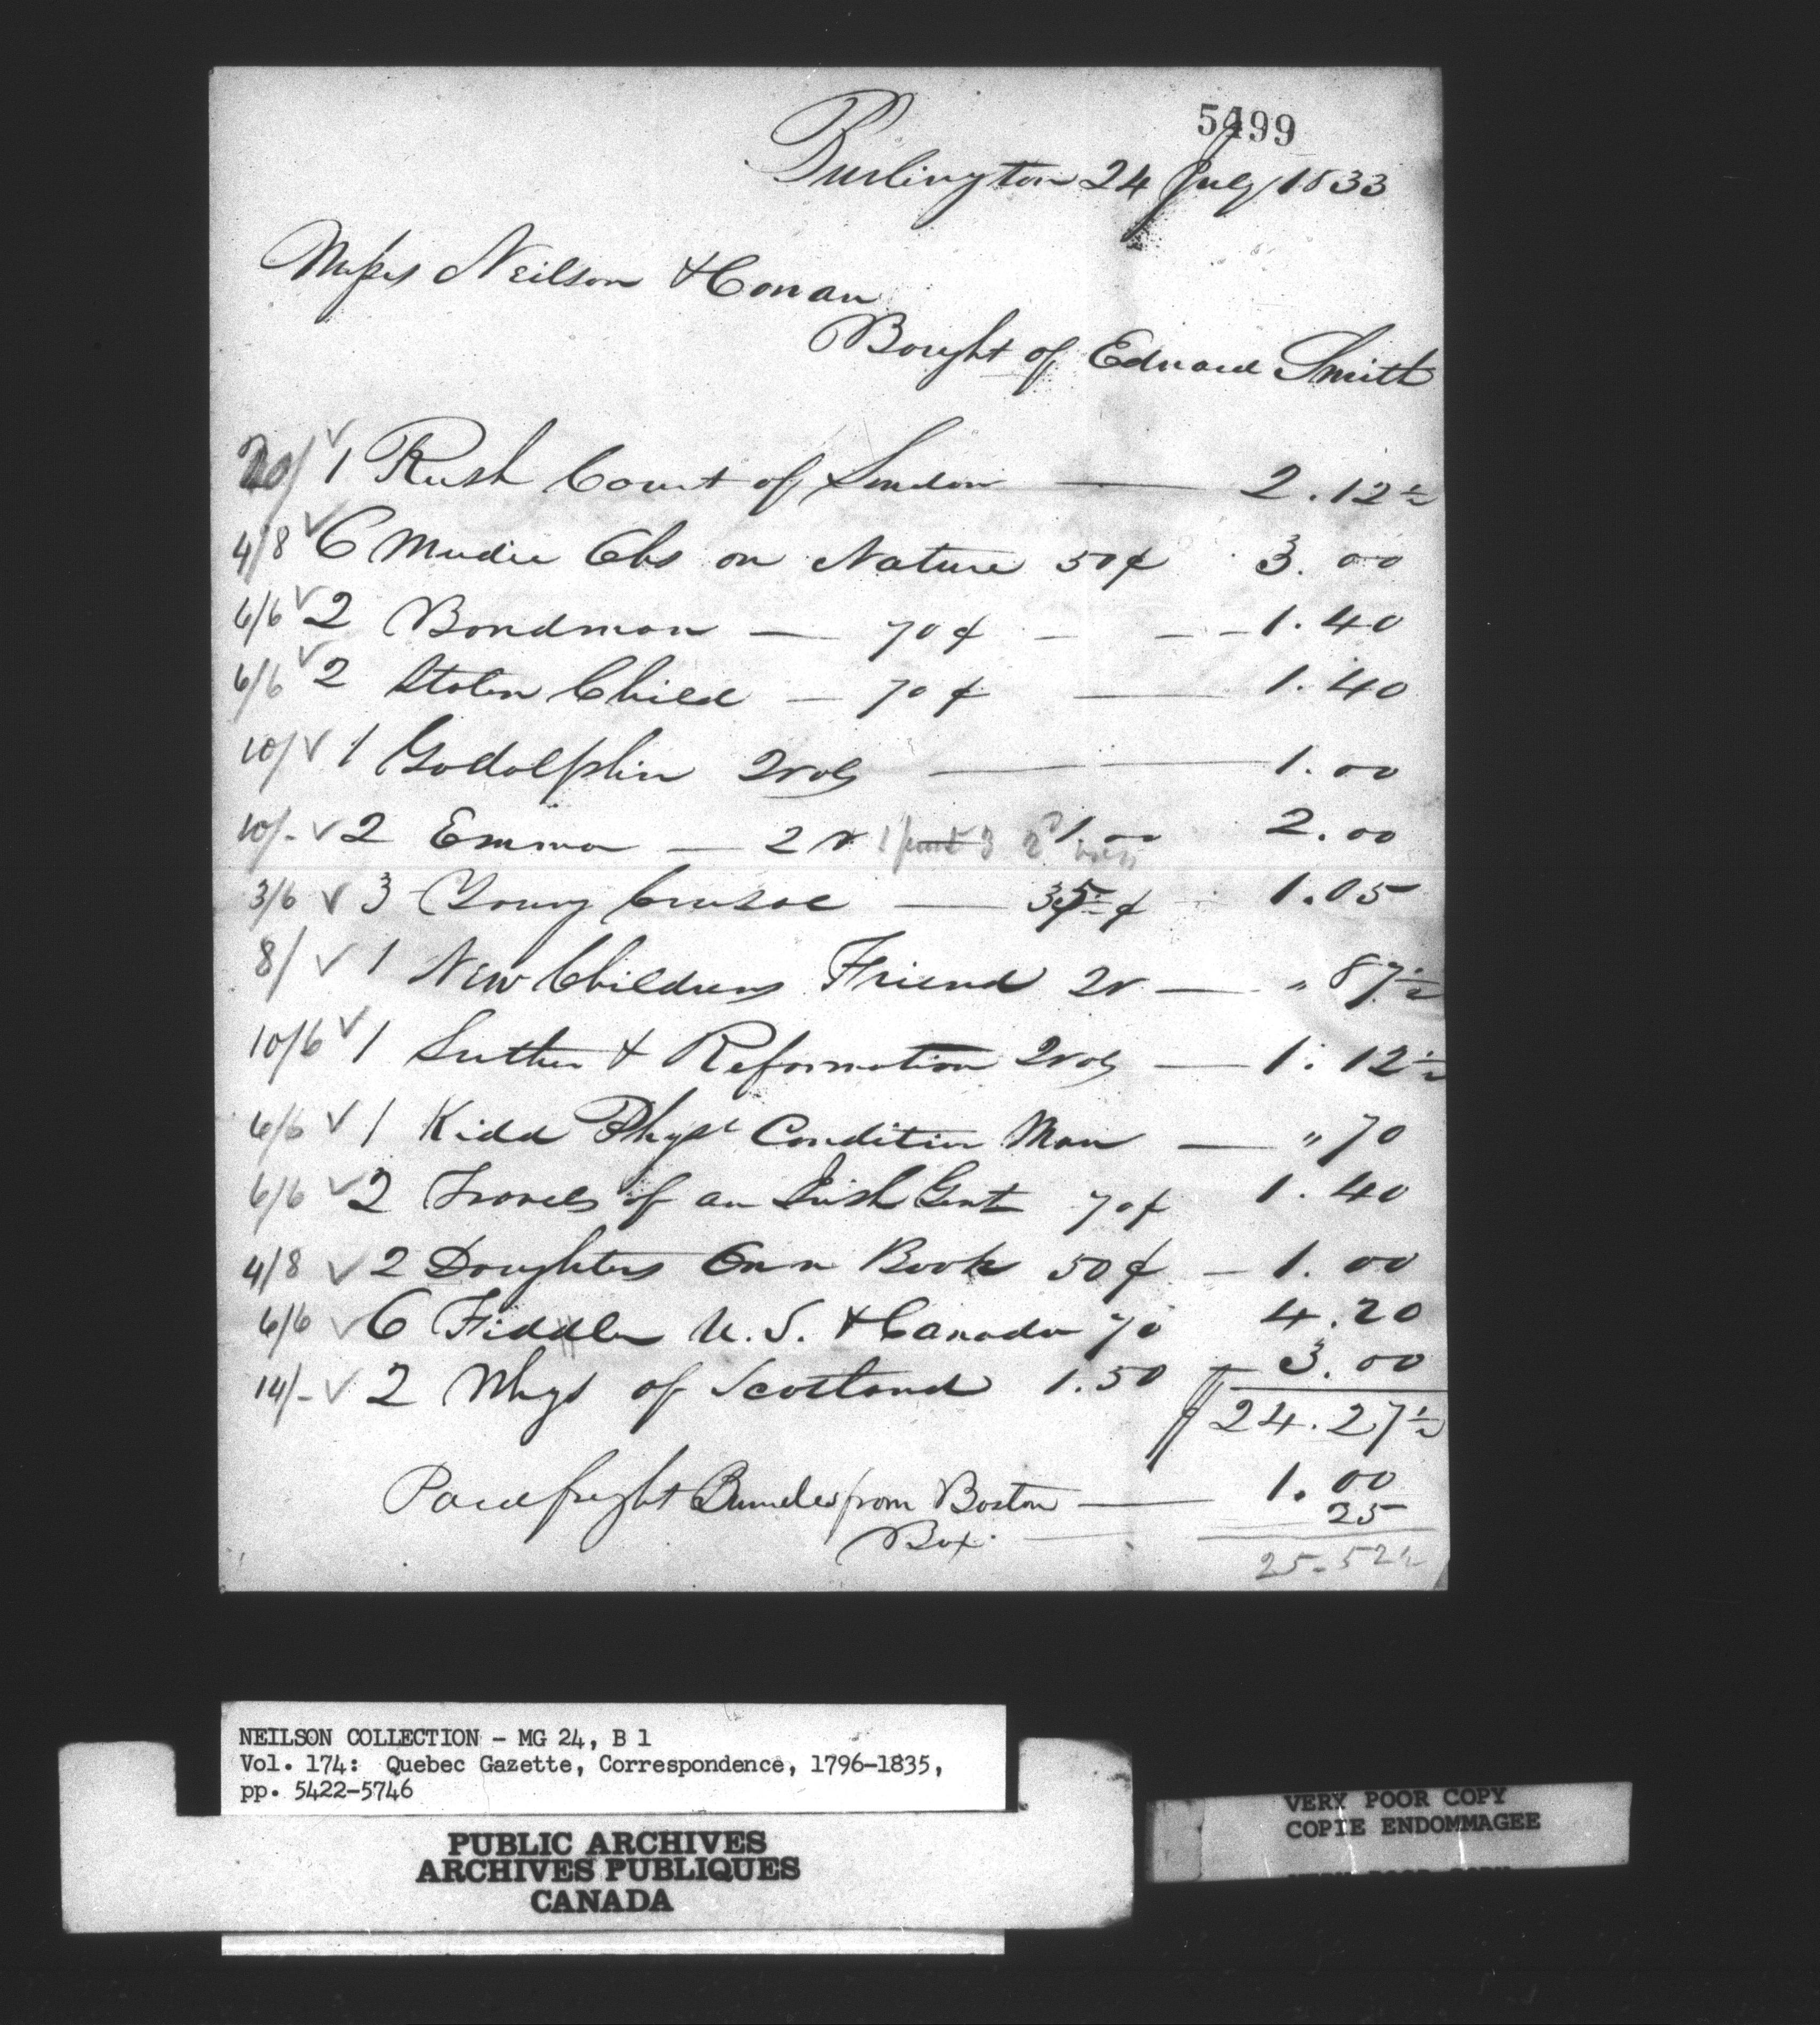 5499
Burlington 24 July 1833
Messrs Neilson & Conan
Bought of Edward Smith
20/ ✓ 1 Rush Court of London — 2.12½
4/8 ✓ 6 Mudie Obs on Nature 50¢ 3.00
6/6 ✓ 2 Bondman — 70¢ — — 1.40
6/6 ✓ 2 Stolen Child — 70¢ — 1.40
10/ ✓ 1 Godolphin 2vols — 1.00
10/- ✓ 2 Emma — 2v 1.00 2.00
3/6 ✓ 3 Young Crusoe — 35¢ 1.05
8/ ✓ 1 New Childrens Friend 2v — " 87½
10/6 ✓ 1 Luther & Reformation 2vols — 1.12½
6/6 ✓ 1 Kidd Physl Condition Man — " 70
6/6 ✓ 2 Travels of an Irish Gent 70¢ 1.40
4/8 ✓ 2 Daughters Own Book 50¢ — 1.00
6/6 ✓ 6 Fiddler U.S. & Canada 70 4.20
14/- ✓ 2 Whys of Scotland 1.50 3.00
$ 24.27½
Paid freight Bundles from Boston — 1.00
Box — 25
25.52½
NEILSON COLLECTION - MG 24, B 1
Vol. 174: Quebec Gazette, Correspondence, 1796-1835,
pp. 5422-5746
PUBLIC ARCHIVES
ARCHIVES PUBLIQUES
CANADA
VERY POOR COPY
COPIE ENDOMMAGEE